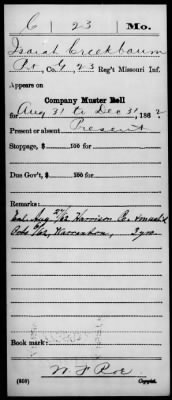 C | 23 | Mo.
Isaiah Creekbaum
Pvt, Co. G, 23 Reg't Missouri Inf.
Appears on
Company Muster Roll
for Aug 31 to Dec 31, 1862.
Present or absent Present
Stoppage, $ 100 for
Due Gov't, $ 100 for
Remarks:
Enl. Aug 27/62 Harrison Co.
Warrenton, 3 yrs.
Book mark:
(859)
Copyist.